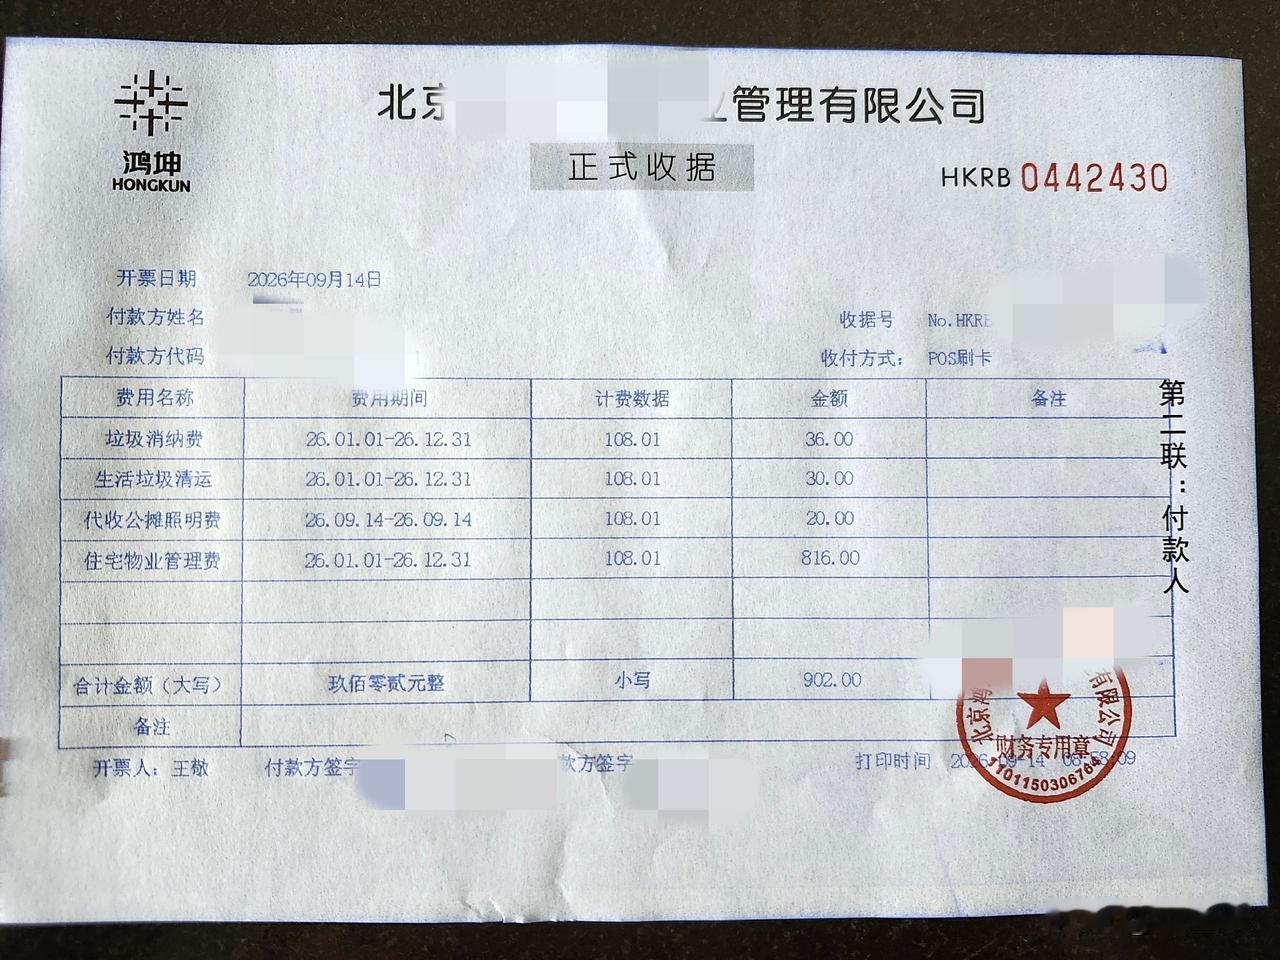 鸿坤
HONGKUN
北京
管理有限公司
正式收据
HKRB 0442430
开票日期 2026年09月14日
付款方姓名
收据号 No.HKRB
付款方代码
收付方式： POS刷卡
费用名称 费用期间 计费数据 金额 备注
垃圾消纳费 26.01.01-26.12.31 108.01 36.00
生活垃圾清运 26.01.01-26.12.31 108.01 30.00
代收公摊照明费 26.09.14-26.09.14 108.01 20.00
住宅物业管理费 26.01.01-26.12.31 108.01 816.00
合计金额（大写） 玖佰零贰元整 小写 902.00
备注
开票人：王敬 付款方签字 款方签字 打印时间 2026-09-14 08:58:09
第二联：付款人
北京鸿
有限公司
财务专用章